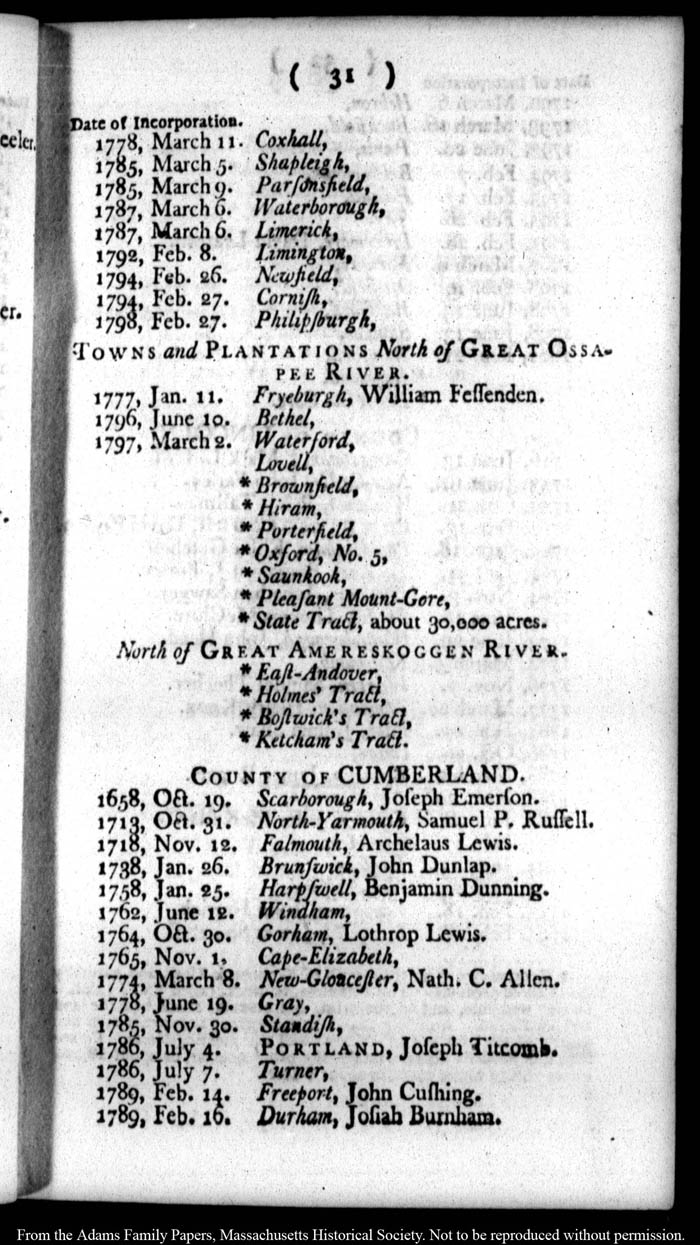 ( 31 )
Date of Incorporation.
eeler.
1778, March 11. Coxhall,
1785, March 5. Shapleigh,
1785, March 9. Parſonsfield,
1787, March 6. Waterborough,
1787, March 6. Limerick,
1792, Feb. 8. Limington,
1794, Feb. 26. Newfield,
1794, Feb. 27. Corniſh,
er.
1798, Feb. 27. Philipſburgh,
TOWNS and PLANTATIONS North of GREAT OSSA-
PEE RIVER.
1777, Jan. 11. Fryeburgh, William Feſſenden.
1796, June 10. Bethel,
1797, March 2. Waterford,
Lovell,
* Brownfield,
* Hiram,
* Porterfield,
* Oxford, No. 5,
* Saunkook,
* Pleaſant Mount-Gore,
* State Tract, about 30,000 acres.
North of GREAT AMERESKOGGEN RIVER.
* Eaſt-Andover,
* Holmes' Tract,
* Boſtwick's Tract,
* Ketcham's Tract.
COUNTY OF CUMBERLAND.
1658, Oct. 19. Scarborough, Joſeph Emerſon.
1713, Oct. 31. North-Yarmouth, Samuel P. Ruſſell.
1718, Nov. 12. Falmouth, Archelaus Lewis.
1738, Jan. 26. Brunſwick, John Dunlap.
1758, Jan. 25. Harpſwell, Benjamin Dunning.
1762, June 12. Windham,
1764, Oct. 30. Gorham, Lothrop Lewis.
1765, Nov. 1. Cape-Elizabeth,
1774, March 8. New-Gloaceſter, Nath. C. Allen.
1778, June 19. Gray,
1785, Nov. 30. Standiſh,
1786, July 4. PORTLAND, Joſeph Titcomb.
1786, July 7. Turner,
1789, Feb. 14. Freeport, John Cuſhing.
1789, Feb. 16. Durham, Joſiah Burnham.
From the Adams Family Papers, Massachusetts Historical Society. Not to be reproduced without permission.